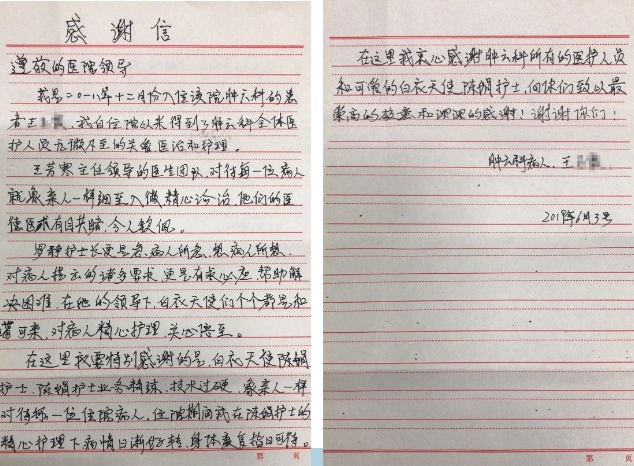 感谢信
遵敬的医院领导
我是二0一八年十二月份入住该院肿六科的患
者王 我自住院以来得到了肿六科全体医
护人员无微不至的关爱医治和护理.
王芳 主任领导的医生团队.对待每一位病人
就象亲人一样细至入微,精心诊治.他们的医
德医术有目共睹.令人钦佩.
罗静护士长更是急病人所急.想病人所想.
对病人提出的诸多要求.更是有求必应 帮助解
决困难.在她的领导下,白衣天使们个个都是和
蔼可亲.对病人精心护理.关心倍至.
在这里我要特别感谢的是.白衣天使陈娟
护士.陈娟护士业务精珠.技术过硬.象亲人一样
对待每一位住院病人.住院期间我在陈娟护士的
精心护理下病情日渐好转.身体康复指日可待.
第 页
在这里我衷心感谢肿六科所有的医护人员
和可敬的白衣天使陈娟护士.向你们致以最
崇高的敬意和深深的感谢!谢谢你们!
肿六科病人.王
2019年6月3号
第 页